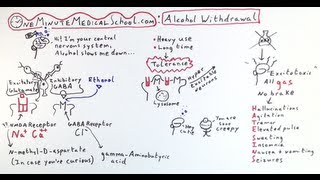 OneMinuteMedicalSchool.com: Alcohol Withdrawal
Hi! I'm your central
nervous system,
Alcohol slows me down...
Excitatory
Glutamate
Inhibitory
GABA
Ethanol
NMDA Receptor
Na+ Ca2+
GABA Receptor
Cl-
N-methyl-D-aspartate
(In case you're curious)
gamma-Aminobutyric
acid
• Heavy use
• Long time
Tolerance
Hyper
Excitable
Neurons
Lysosome
You are
soooo
creepy
Excitatosis
All gas
No brake
Hallucinations
Agitation
Tremor
Elevated pulse
Sweating
Insomnia
Nausea & vomiting
Seizures